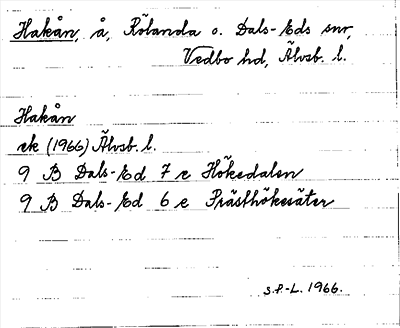 Hakån, å, Rölanda o. Dals-Eds snr,
Vedbo hd, Älvsb. l.
Hakån
ek (1966) Älvsb. l.
9 B Dals-Ed 7 e Hökedalen
9 B Dals-Ed 6 e Prästhökesäter
S.P.-L. 1966.